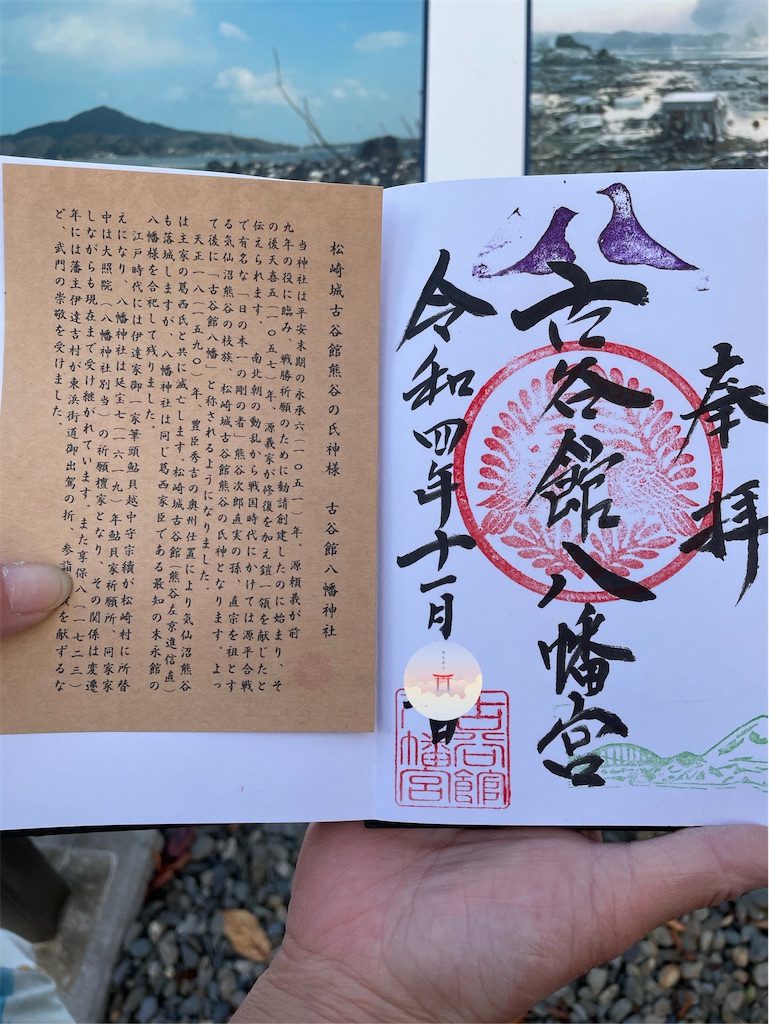 奉拝
古谷館八幡宮
令和四年十一月
古谷館
八幡宮
松崎城古谷館熊谷の氏神様　古谷館八幡神社
当神社は平安末期の永承六(一〇五一)年、源頼義が前
九年の役に臨み、戦勝祈願のために勧請創建したのに始まり、そ
の後天喜五(一〇五七)年、源義家が修復を加え鎧一領を献じたと
伝えられます。　南北朝の動乱から戦国時代にかけては源平合戦
で有名な「日の本一の剛の者」熊谷次郎直実の孫、直宗を祖とす
る気仙沼熊谷の枝族、松崎城古谷館熊谷の氏神となります。よっ
て後に「古谷館八幡」と称されるようになりました。
天正一八(一五九〇)年、豊臣秀吉の奥州仕置により気仙沼熊谷
は主家の葛西氏と共に滅亡します。松崎城古谷館(熊谷左京進信直)
も落城しますが、八幡神社は同じ葛西家臣である最知の末永館の
八幡様を合祀して残りました。
江戸時代には伊達家御一家筆頭鮎貝越中守宗績が松崎村に所替
えになり、八幡神社は延宝七(一六一九)年鮎貝家祈願所、同家家
中は大照院(八幡神社別当)の祈願檀家となり、その関係は変遷
しながらも現在まで受け継がれています。また享保八(一七二三)
年には藩主伊達吉村が東浜街道御出駕の折、参詣を献ずるな
ど、武門の崇敬を受けました。